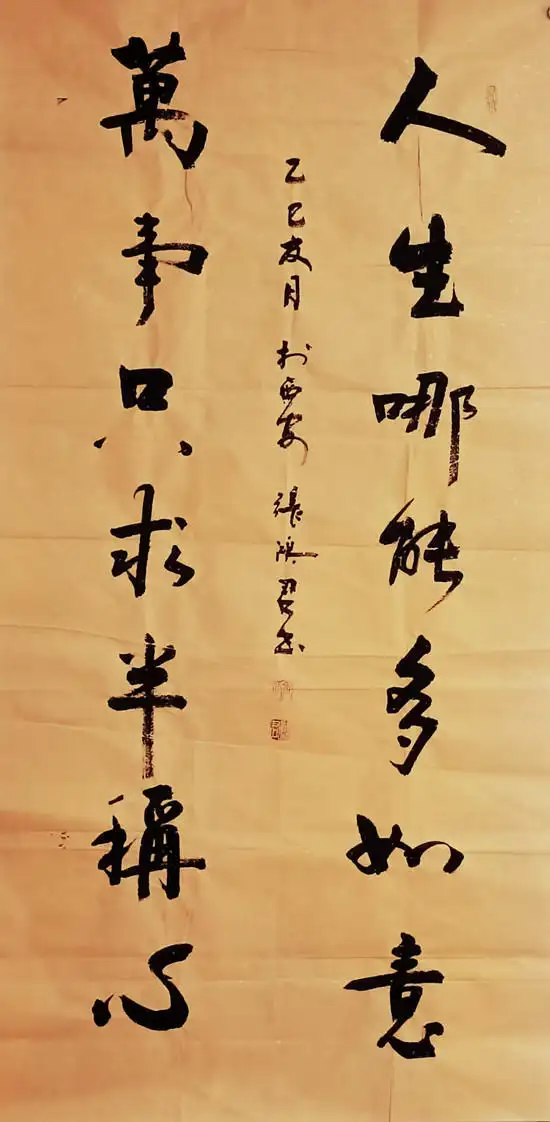 人生哪能多如意
萬事只求半稱心
乙巳夏月於西安 張陕君书